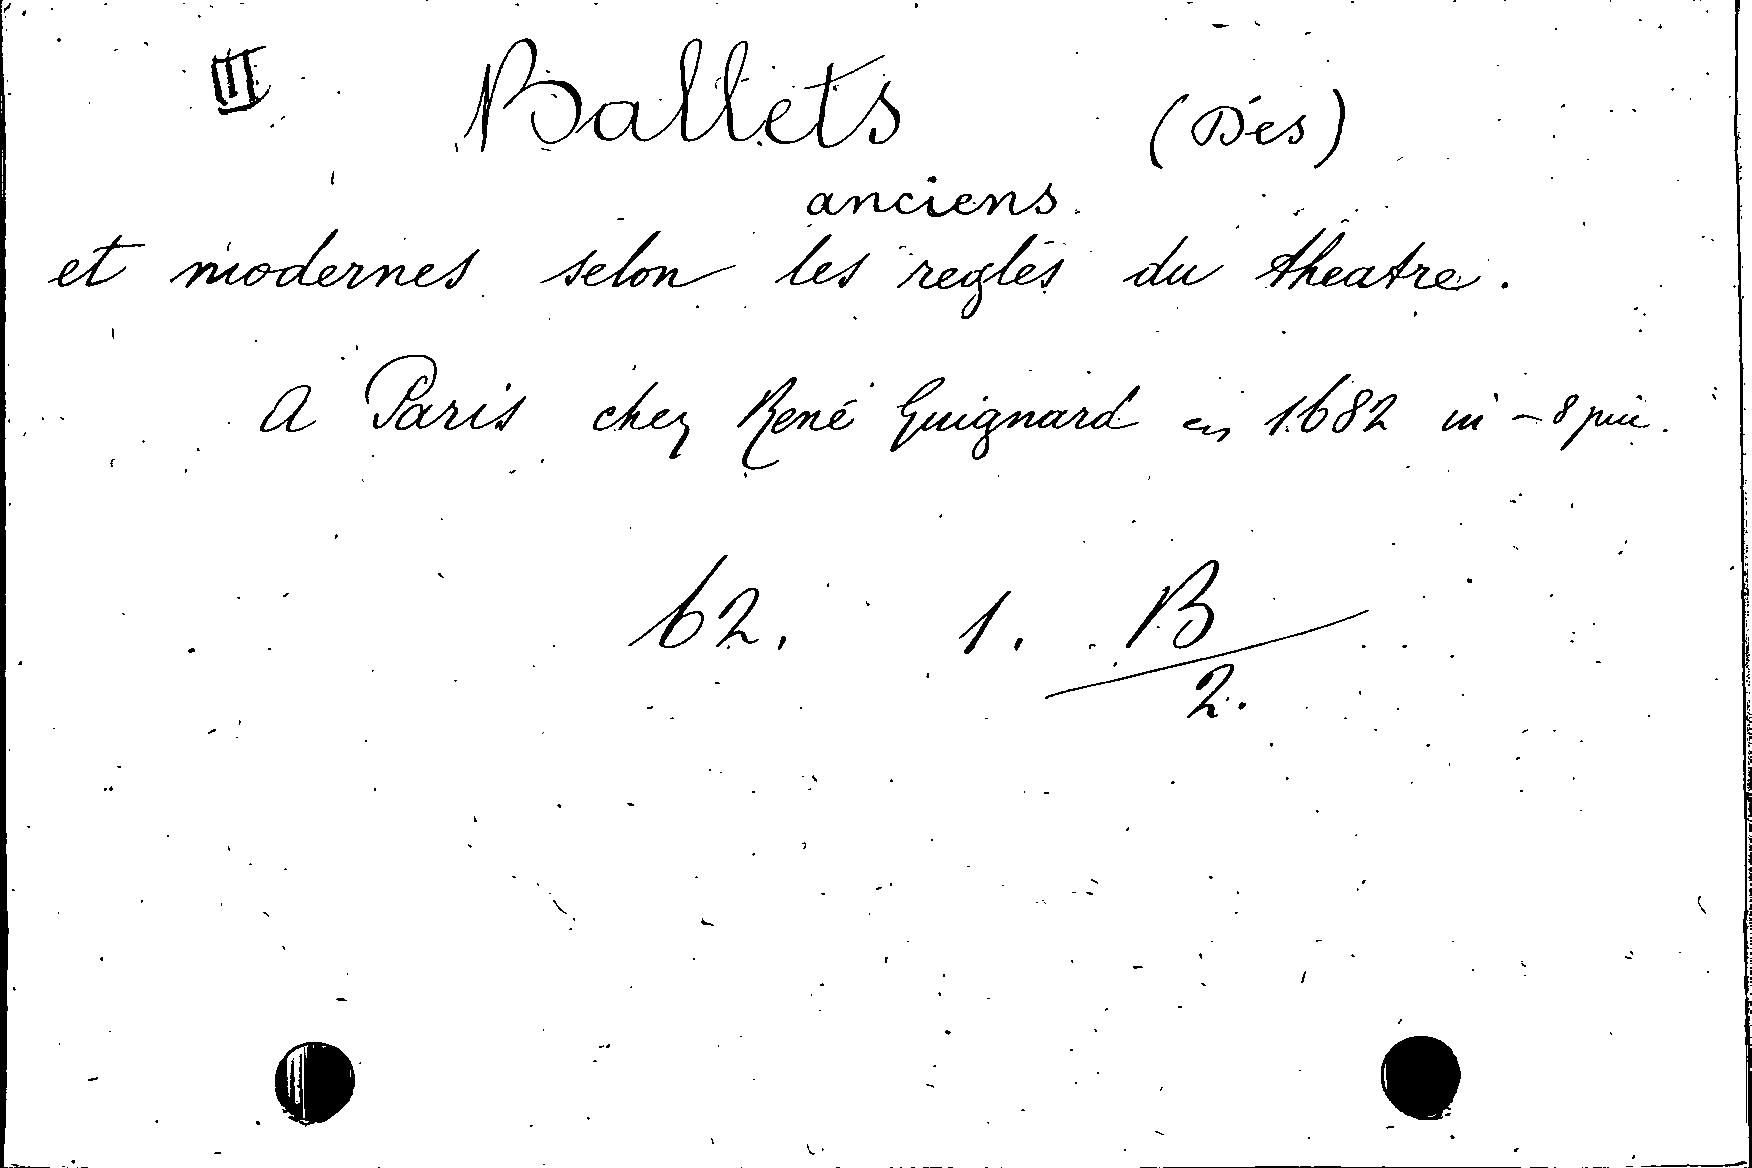 III Ballets (Des)
anciens
et modernes selon les regles du theatre.
A Paris chez René Guignard en 1682 in-8
62. 1. B
2.